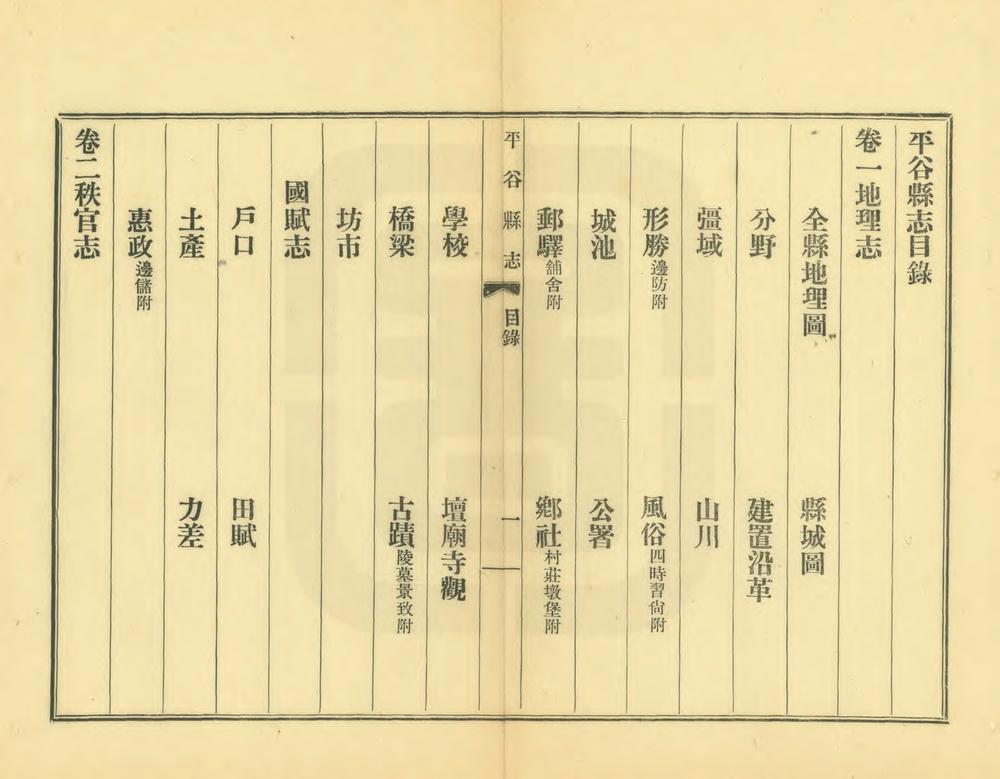 平谷縣志目錄
卷一地理志
全縣地理圖　縣城圖
分野　建置沿革
彊域　山川
形勝邊防附　風俗四時習尙附
城池　公署
郵驛舖舍附　鄉社村莊墩堡附
平谷縣志　目錄　一
學校　壇廟寺觀
橋梁　古蹟陵墓景致附
坊市
國賦志
戶口　田賦
土產　力差
惠政邊儲附
卷二秩官志